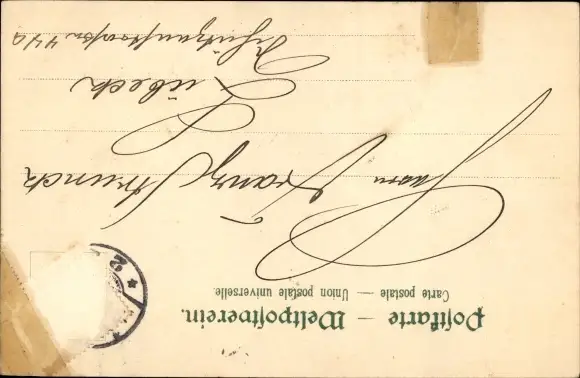 Postkarte — Weltpostverein.
Carte postale — Union postale universelle.
Herrn Franz Strunck
Lübeck
Schützenstrasse 44a
2